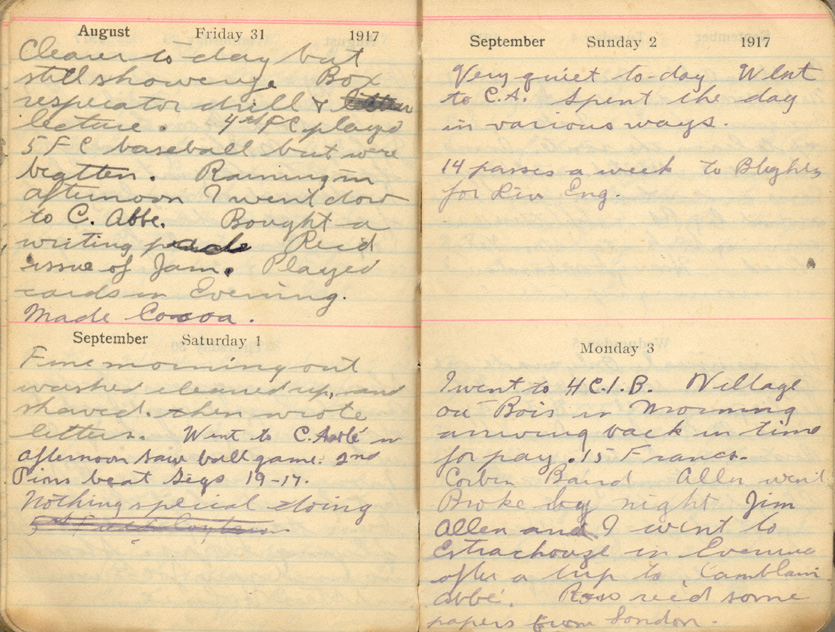 August Friday 31 1917
Clearer to-day but
still showerye Box
resperator drill &
lecture. 4th FC played
5 FC baseball but were
beatten. Raining in
afternoon I went down
to C. Abbe. Bought a
writing Recd
issue of Jam. Played
cards in Evening.
Made Cocoa.
September Saturday 1
Fine morning out
washed cleaned up, and
shaved. then wrote
letters. Went to C. Abbé in
afternoon saw ball game. 2nd
Pions beat Sigs 19-17.
Nothing special doing
September Sunday 2 1917
Very quiet to-day Went
to C.A. Spent the day
in various ways.
14 passes a week to Blighty
for Div Eng.
Monday 3
I went to 4 C.I.B. Village
au Bois in Morning
arriving back in time
for pay. 15 Francs.
Corbin Baird Allen went
Broke by night Jim
Allen and I went to
Estrachouze in Evening
after a trip to Camblain
abbé. Ross recd some
papers from London.